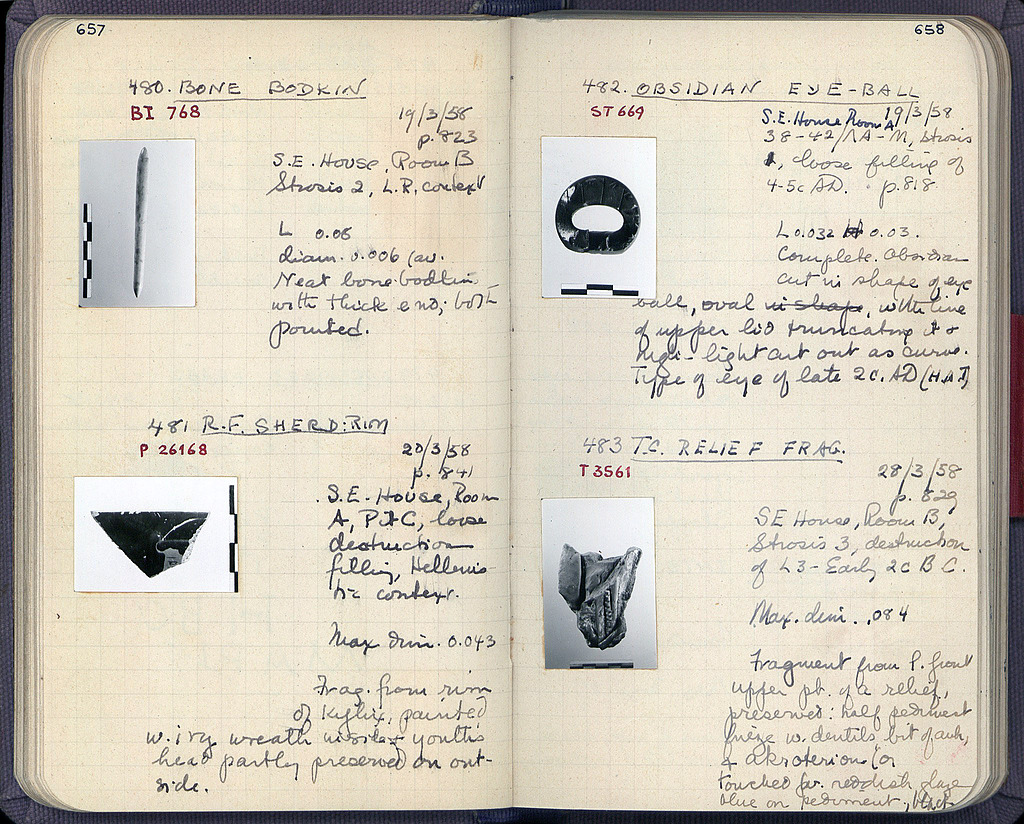 657
480. BONE BODKIN
BI 768
19/3/58
p. 823
S.E. House, Room B
Strosis 2, L.R. context
L 0.08
diam. 0.006 (av.
Neat bone bodkin
with thick end; both
pointed.
481 R.F. SHERD: RIM
P 26168
20/3/58
p. 841
S.E. House, Room
A, Pit C, loose
destruction
filling, Hellenis-
tic context.
Max dim. 0.043
Frag. from rim
of Kylix, painted
w. ivy wreath inside & youths
head partly preserved on out-
side.
658
482. OBSIDIAN EYE-BALL
ST 669
19/3/58
S.E. House Room A
38-42/ΛA-M, Strosis
1, loose filling of
4-5c AD. p. 818
L 0.032 0.03.
Complete. Obsidian
cut in shape of eye
ball, oval in shape, with line
of upper lid truncating it &
high-light cut out as curve.
Type of eye of late 2c. AD (H.A.T)
483 T.C. RELIEF FRAG.
T 3561
28/3/58
p. 829
SE House, Room B,
Strosis 3, destruction
of L3-Early 2c B C.
Max. dim. .084
Fragment from P. front
upper pt. of a relief,
preserved: half pediment
frieze w. dentils, bit of
& akroterion (or
touched for reddish glaze
blue on pediment, black